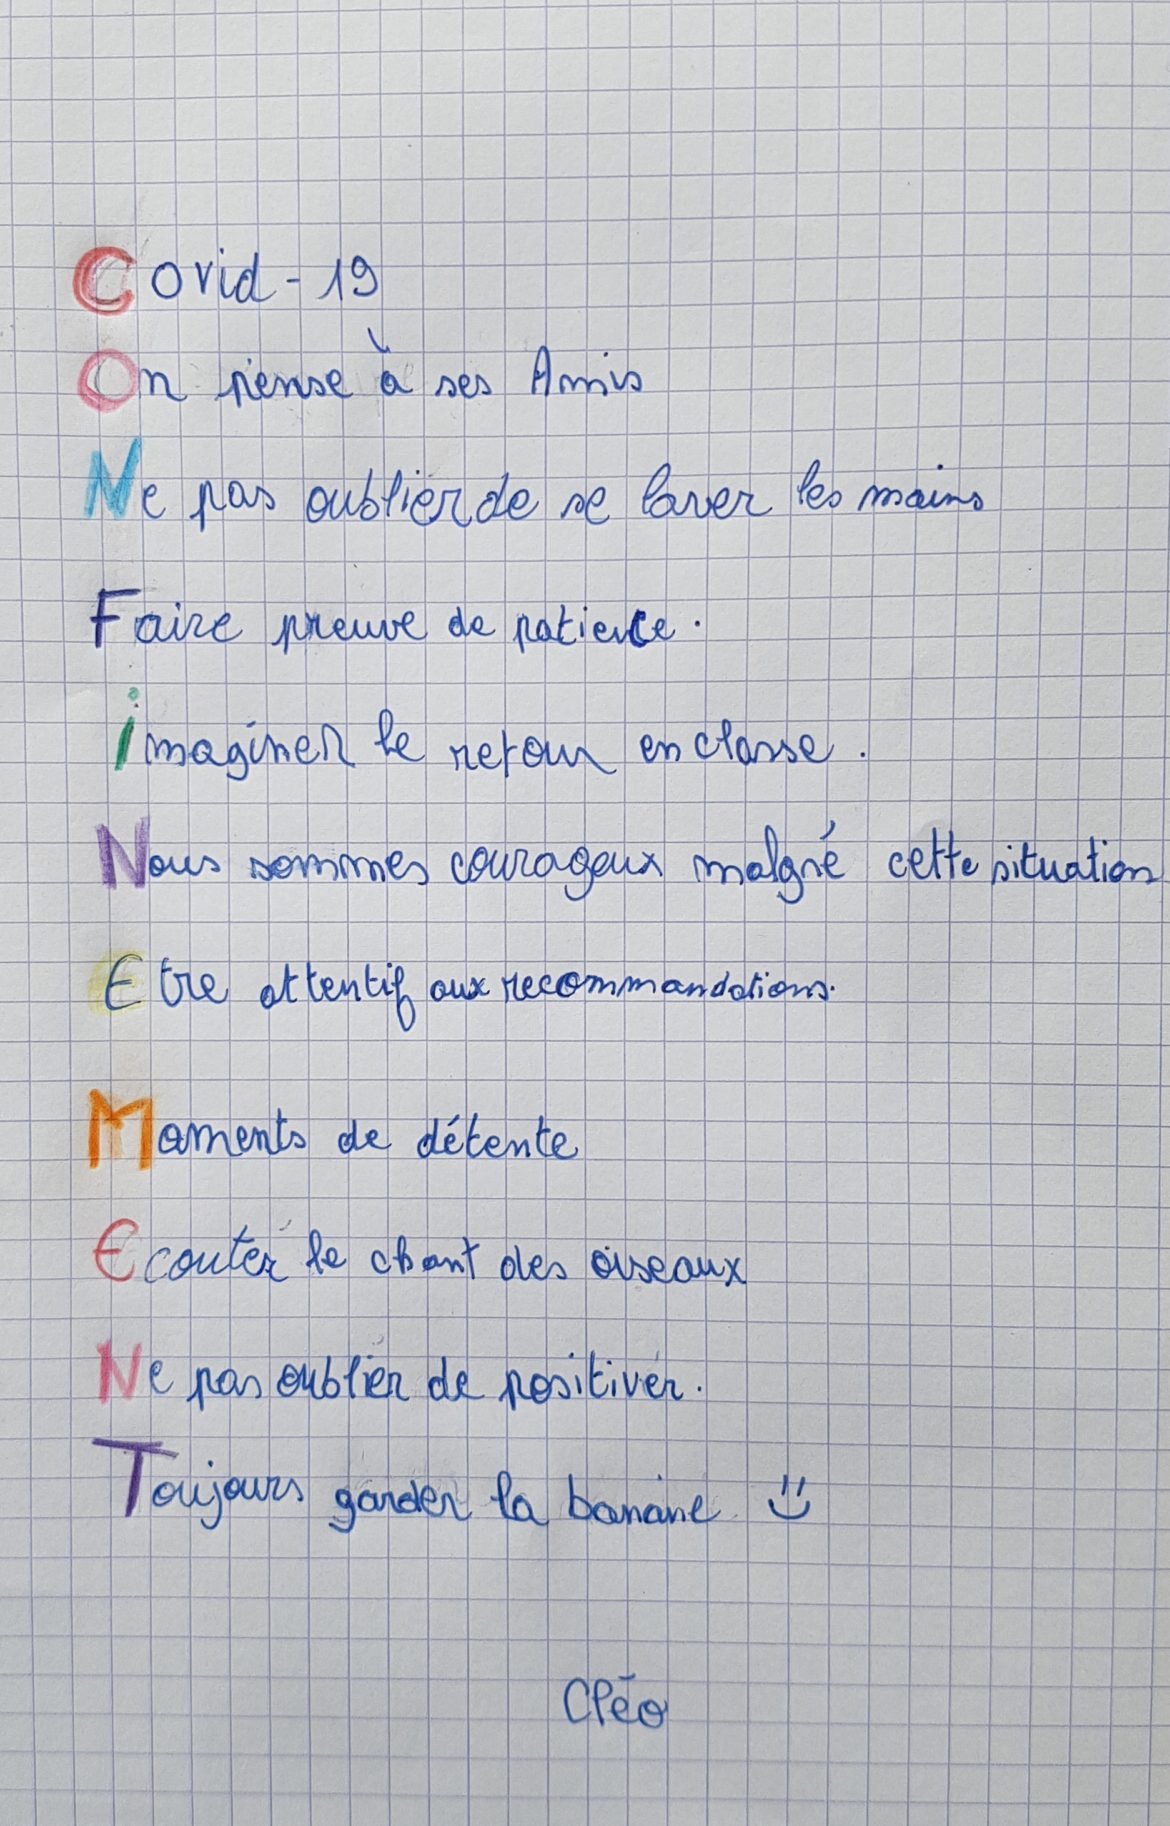 Covid-19
On pense à ses Amis
Ne pas oublier de se laver les mains
Faire preuve de patience.
imaginer le retour en classe.
Nous sommes courageux malgré cette situation
Etre attentif aux recommandations.
Moments de détente
Ecouter le chant des oiseaux
Ne pas oublier de positiver.
Toujours garder la banane :)
Cléo